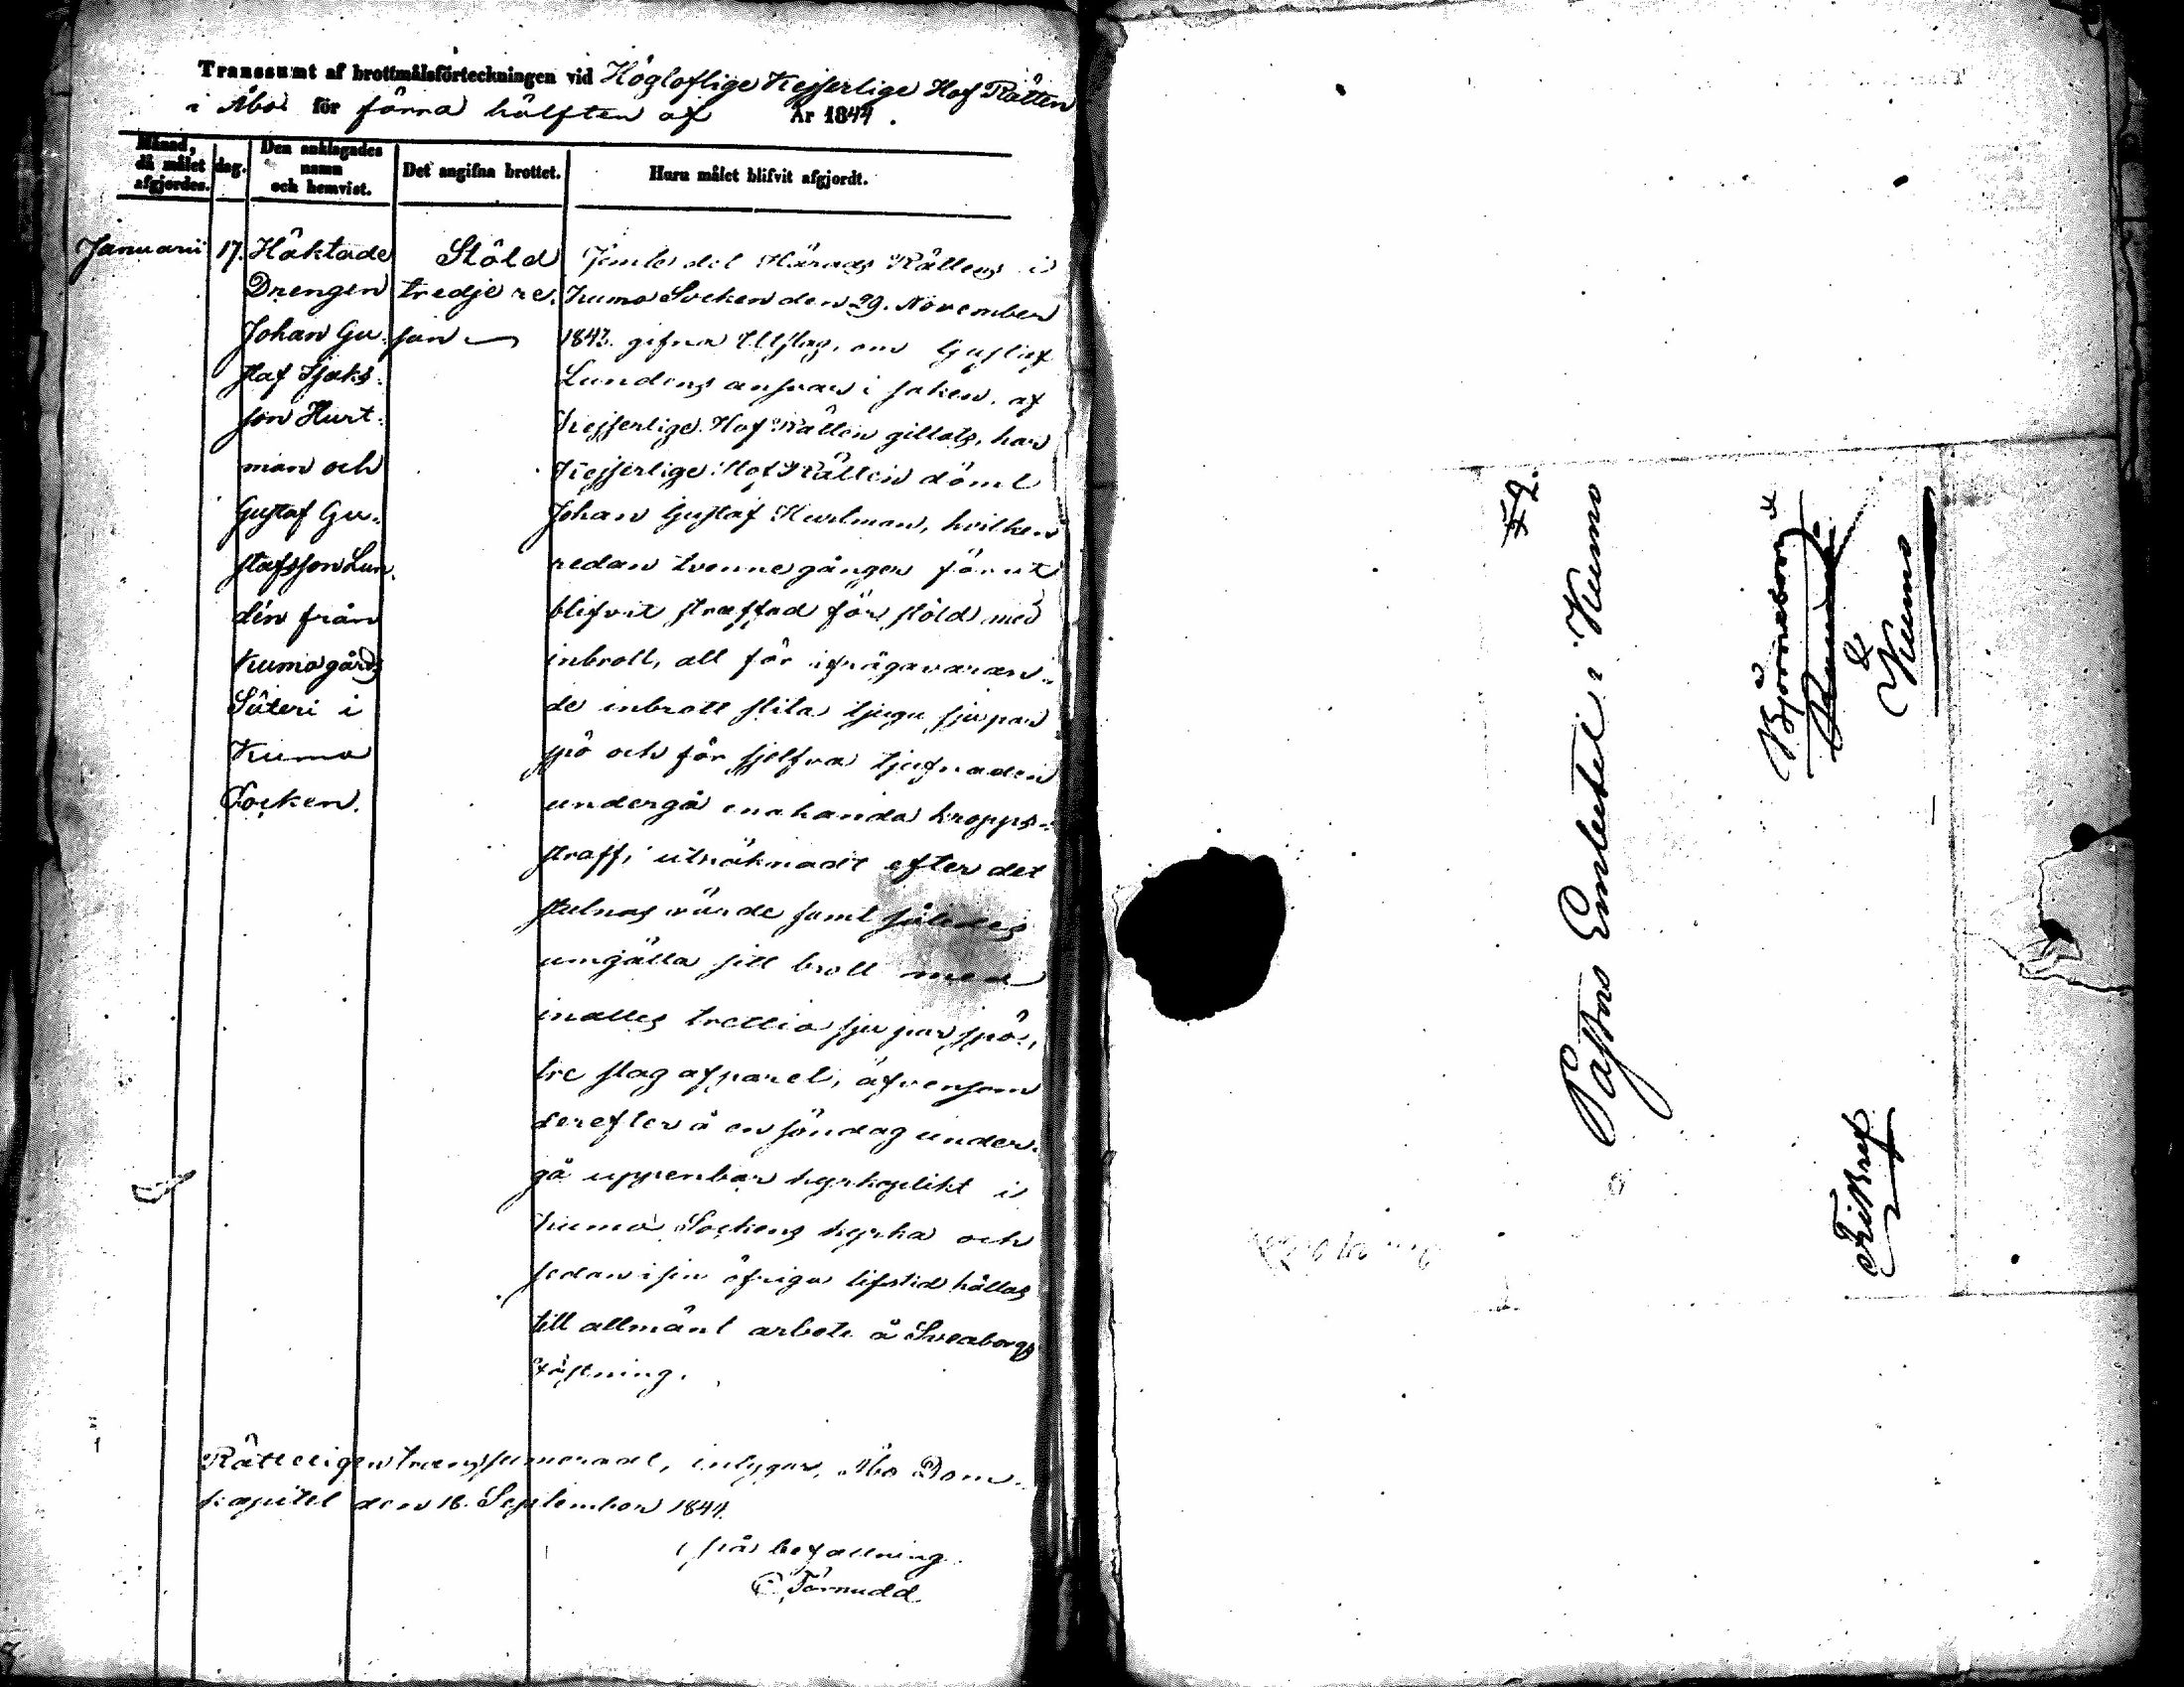 Transsumt af brottmålsförteckningen vid Högloflige Kejserlige Hof Rätten
i Åbo för förra hälften af År 1844.
Månad, då målet afgjordes.
dag.
Den anklagades namn och hemvist.
Det angifna brottet.
Huru målet blifvit afgjordt.
Januarii
17.
Häktade
Drengen
Johan Gu-
staf Isaks-
son Hurt-
man och
Gustaf Gu-
stafsson Lun-
dén från
Kumogårds
Säteri i
Kumo
Socken.
Stöld
tredje re-
san
Jemte det Härads Rättens i
Kumo Socken den 29. November
1843. gifna Utslag, om Gustaf
Lundens ansvar i saken, af
Kejserlige Hof Rätten gillats, har
Kejserlige Hof Rätten dömt
Johan Gustaf Hurtman, hvilken
redan tvenne gånger förut
blifvit straffad för stöld med
inbrott, att för ifrågavaran-
de inbrott slita tjugu sju par
spö och för sjelfva tjufnaden
undergå enahanda kropps-
straff, uträknadt efter det
stulnas värde samt således
umgälla sitt brott med
inalles trettio sju par spö,
tre slag af paret, äfvensom
derefter å en söndag under-
gå uppenbar kyrkoplikt i
Kumo Sockens kyrka och
sedan i sin öfriga lifstid hållas
till allmänt arbete å Sveaborgs
Fästning.
Rätteligen transsumeradt, intygar, Åbo Dom-
kapitel den 18. September 1844.
på befallning
C. Törnudd
Pastors Embetet i Kumo
Björneborg
&
Kumo
Fribref